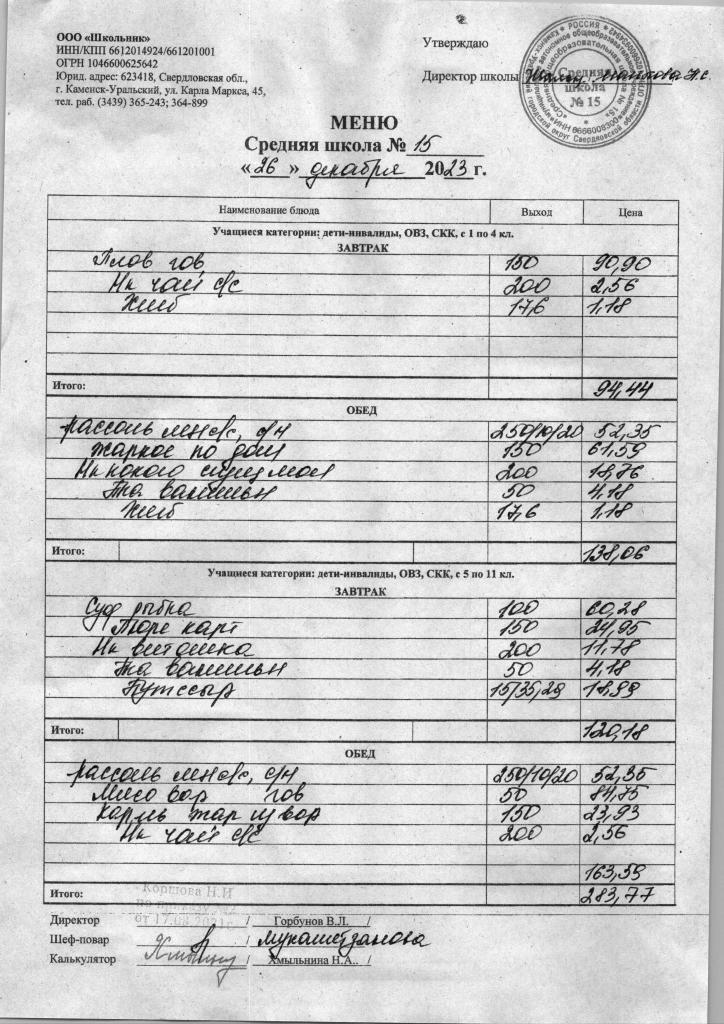 ООО «Школьник»
ИНН/КПП 6612014924/661201001
ОГРН 1046600625642
Юрид. адрес: 623418, Свердловская обл.,
г. Каменск-Уральский, ул. Карла Маркса, 45,
тел. раб. (3439) 365-243; 364-899
Утверждаю
Директор школы
Средняя
школа
№ 15
МЕНЮ
Средняя школа № 15
«26» декабря 2023 г.
Наименование блюда Выход Цена
Учащиеся категории: дети-инвалиды, ОВЗ, СКК, с 1 по 4 кл.
ЗАВТРАК
Плов гов 150 90,90
Нк чай с/с 200 2,56
Хлеб 17,6 1,18
Итого: 94,44
ОБЕД
рассоль мнс/с, с/н 250/10/20 52,35
жаркое по дом 150 61,59
Нк какао сгущ мол 200 18,76
Та ванильн 50 4,18
Хлеб 17,6 1,18
Итого: 138,06
Учащиеся категории: дети-инвалиды, ОВЗ, СКК, с 5 по 11 кл.
ЗАВТРАК
Суф рыбна 100 60,28
Пюре карт 150 24,95
Нк витошка 200 11,78
Та ванильн 50 4,18
Бутссыр 15/35,29 18,99
Итого: 120,18
ОБЕД
рассоль мнс/с, с/н 250/10/20 52,35
Мясо вар гов 50 84,75
Карт жар из вар 150 23,93
Нк чай с/с 200 2,56
163,59
Итого: 283,77
Коршова Н.И
по приказу
от 17.08.2021г
Директор / Горбунов В.Л. /
Шеф-повар / Мукашевзанова
Калькулятор / Хмыльнина Н.А.. /